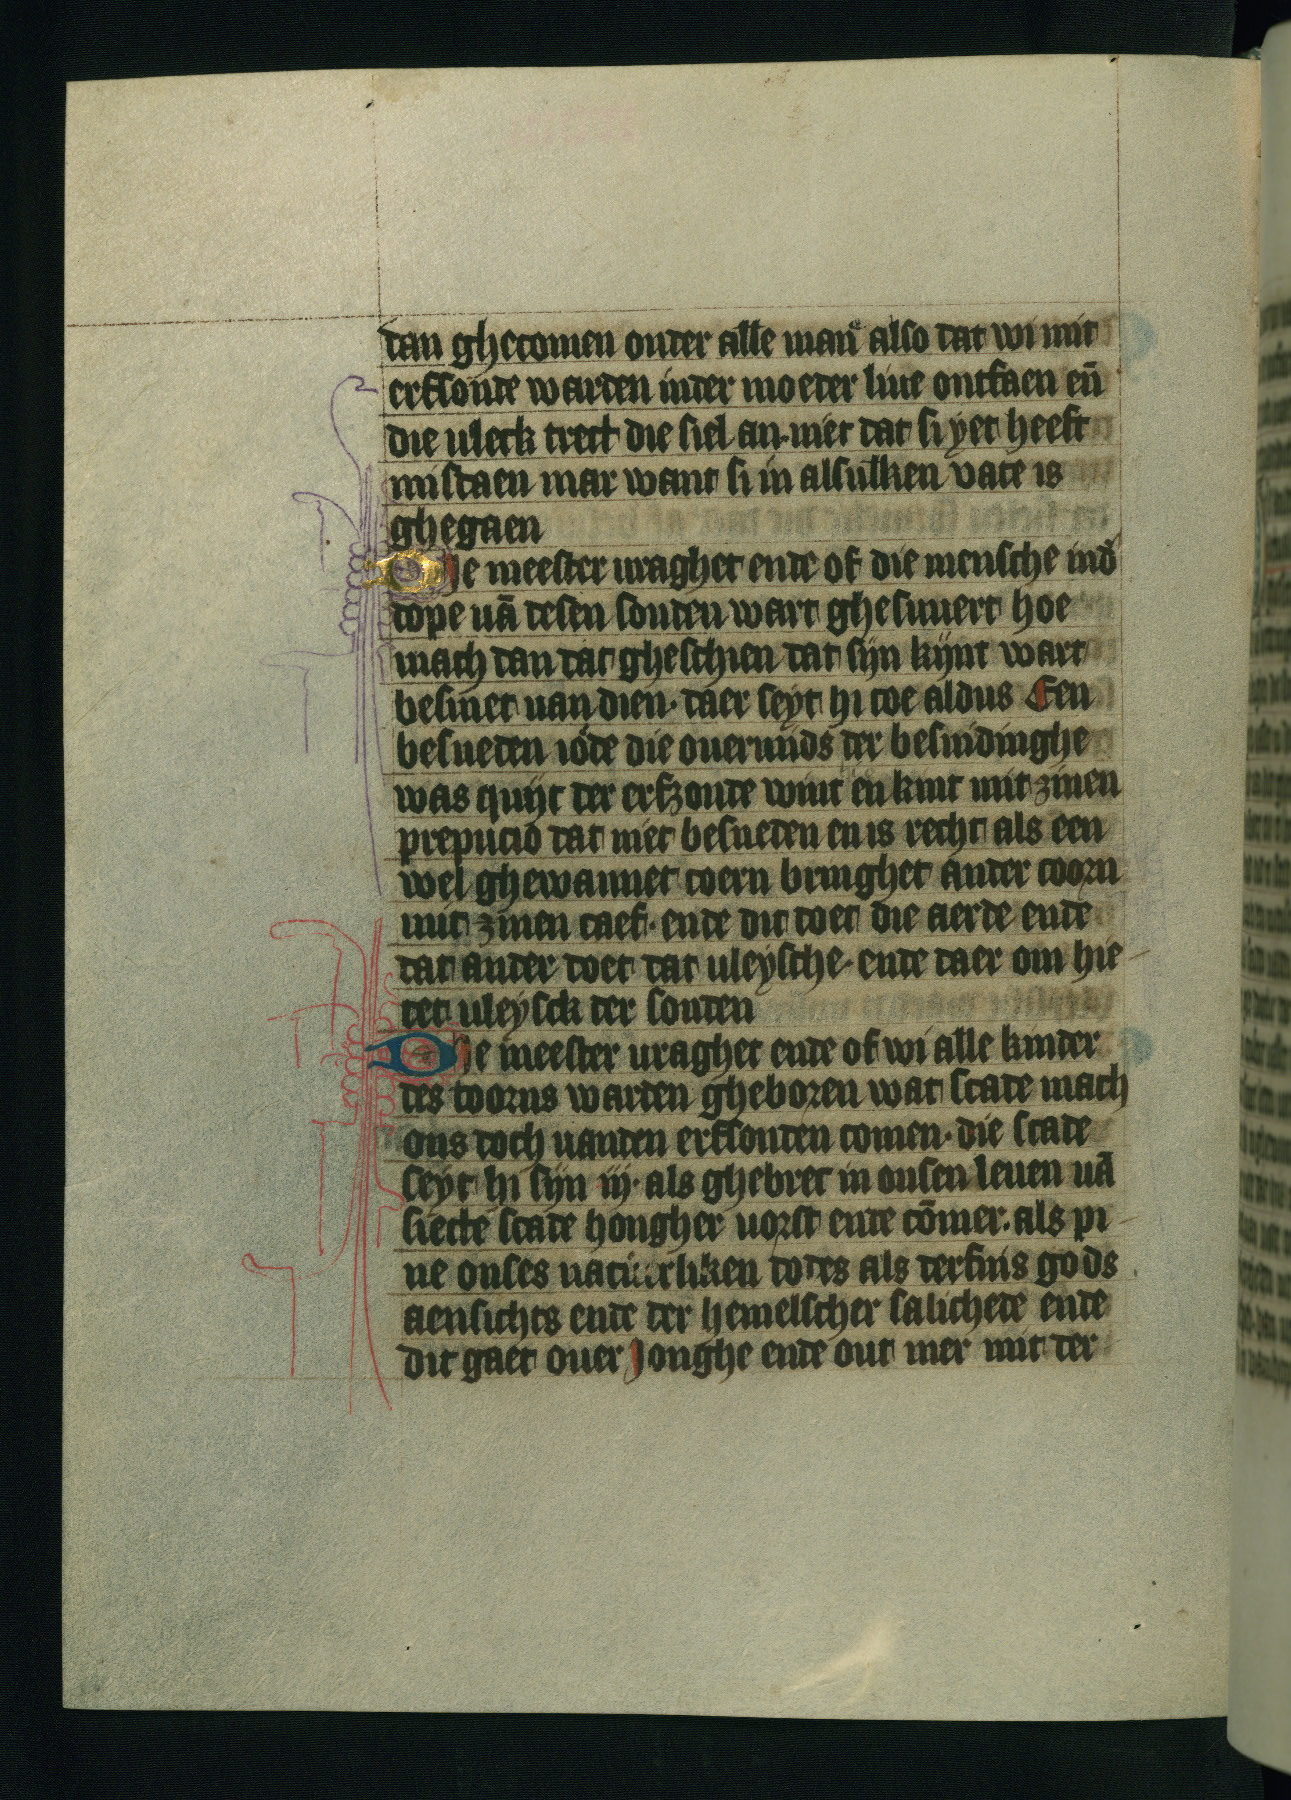 dan ghecomen onder alle man also dat wi mit
erfsonde warden inder moeder liue ontfaen eñ
die vleck trect die siel an. niet dat si yet heeft
misdaen mar want si in alsulken vate is
ghegaen
DIe meester uraghet ende of die mensche ind'
dope uā desen sonden wart ghesuuert hoe
mach dan dat gheschien dat sijn kijnt wart
besmet uan dien. daer seyt hi toe aldus Een
besneden iode die ouermids der besnidinghe
was quijt der erfzonde wint en kint mit zinen
prepucio dat niet besneden en is recht als een
wel ghewannet coern bringhet ander coorn
mit zinen caef. ende dit doet die aerde ende
dat ander doet dat uleysche. ende daer om hie
tet uleysck der sonden
DIe meester uraghet ende of wi alle kinder
des toorns warden gheboren wat scade mach
ons doch uanden erfsonden comen. die scade
seyt hi sijn iij. als ghebret in onsen leuen uā
siecte scade hongher uorst ende cōmer. als pi
ne onses natuerliken dodes als derfnis gods
aensichts ende der hemelscher salichede ende
dit gaet ouer Jonghe ende out mer mit der